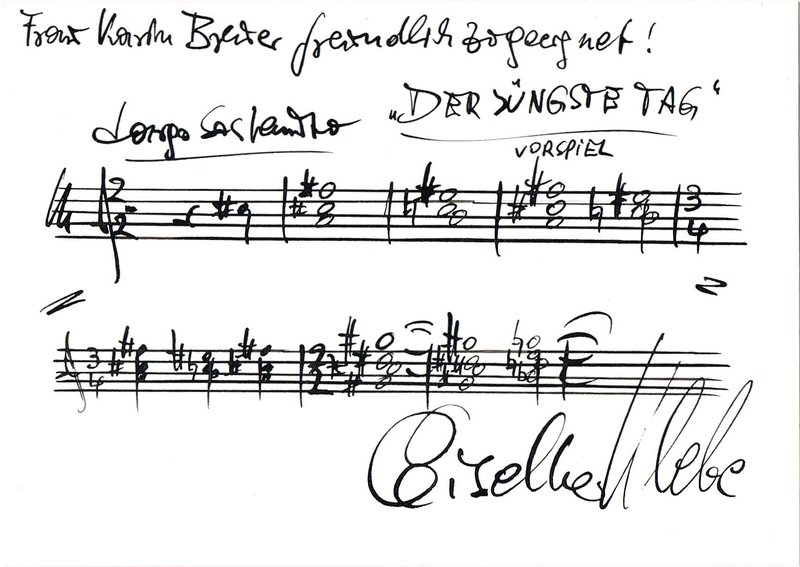 Frau Karin freundlich zugeeignet!
„DER JÜNGSTE TAG“
Largo sostenuto
VORSPIEL
2
2
3
4
3
4
2
2
Giselher Klebe